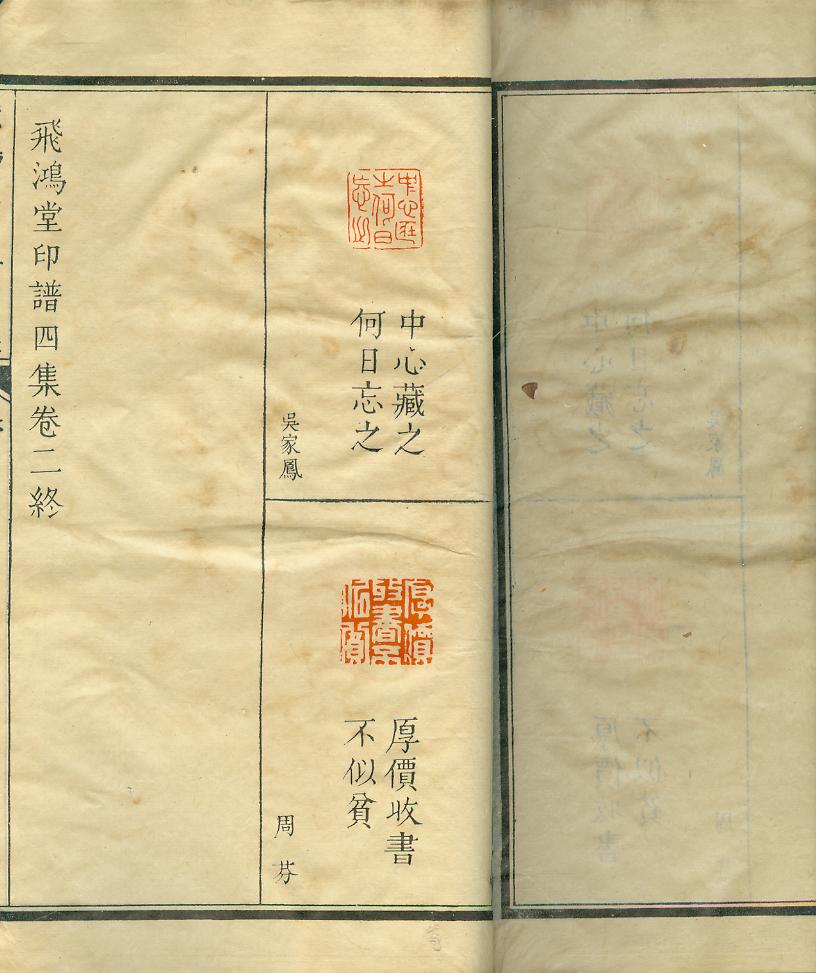 中心藏之
何日忘之
吳家鳳
厚價收書
不似貧
周芬
飛鴻堂印譜四集卷二終